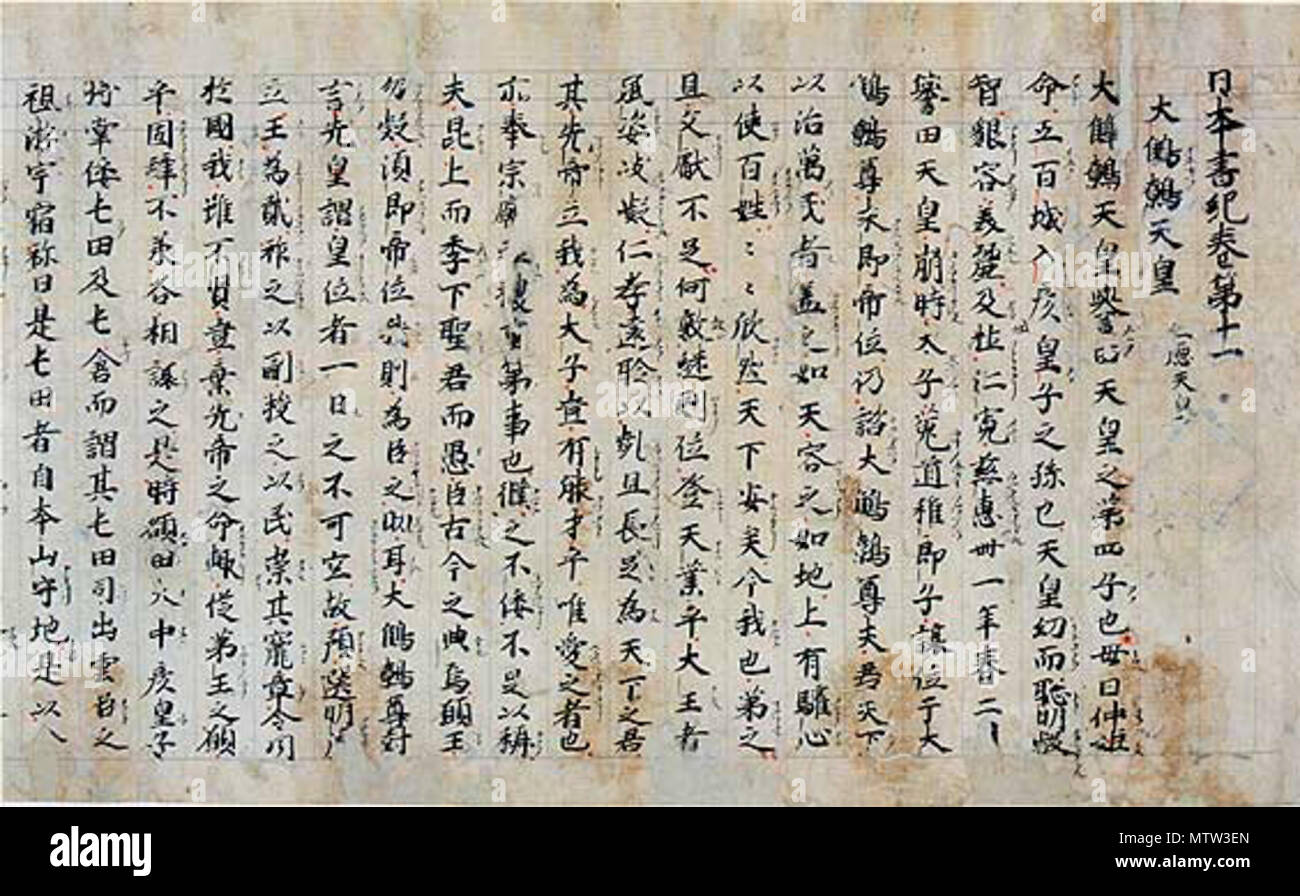 日本書紀巻第十一
大鷦鷯天皇
大鷦鷯天皇譽田天皇之第四子也母曰仲姫
命五百城入彦皇子之孫也天皇幼而聡明叡
智貌容美麗及壮仁寛慈惠卌一年春二
譽田天皇崩時太子菟道稚郎子讓位于大
鷦鷯尊未即帝位仍諮大鷦鷯尊夫君天下
以治萬民者盖之如天容之如地上有驩心
以使百姓〻〻欣然天下安矣今我也弟之
且文獻不足何敢繼嗣位登天業乎大王者
風姿岐嶷仁孝遠聆以齒且長足為天下之君
其先帝立我為太子豈有能才乎唯愛之者也
亦奉宗廟 事也僕之不佞不足以稱
夫昆上而季下聖君而愚臣古今之典焉願王
勿疑須即帝位我則為臣之助耳大鷦鷯尊對
言先皇謂皇位者一日之不可空故預選明
立王為貳祚之以副授之以民崇其寵章令聞
於國我雖不賢豈棄先帝之命輙從弟王之願
乎固辭不承各相讓之是時額田大中彦皇子
将掌倭屯田及屯倉而謂其屯田司出雲臣之
祖淤宇宿祢曰是屯田者自本山守地是以今
alamy
Image ID: MTW3EN
www.alamy.com